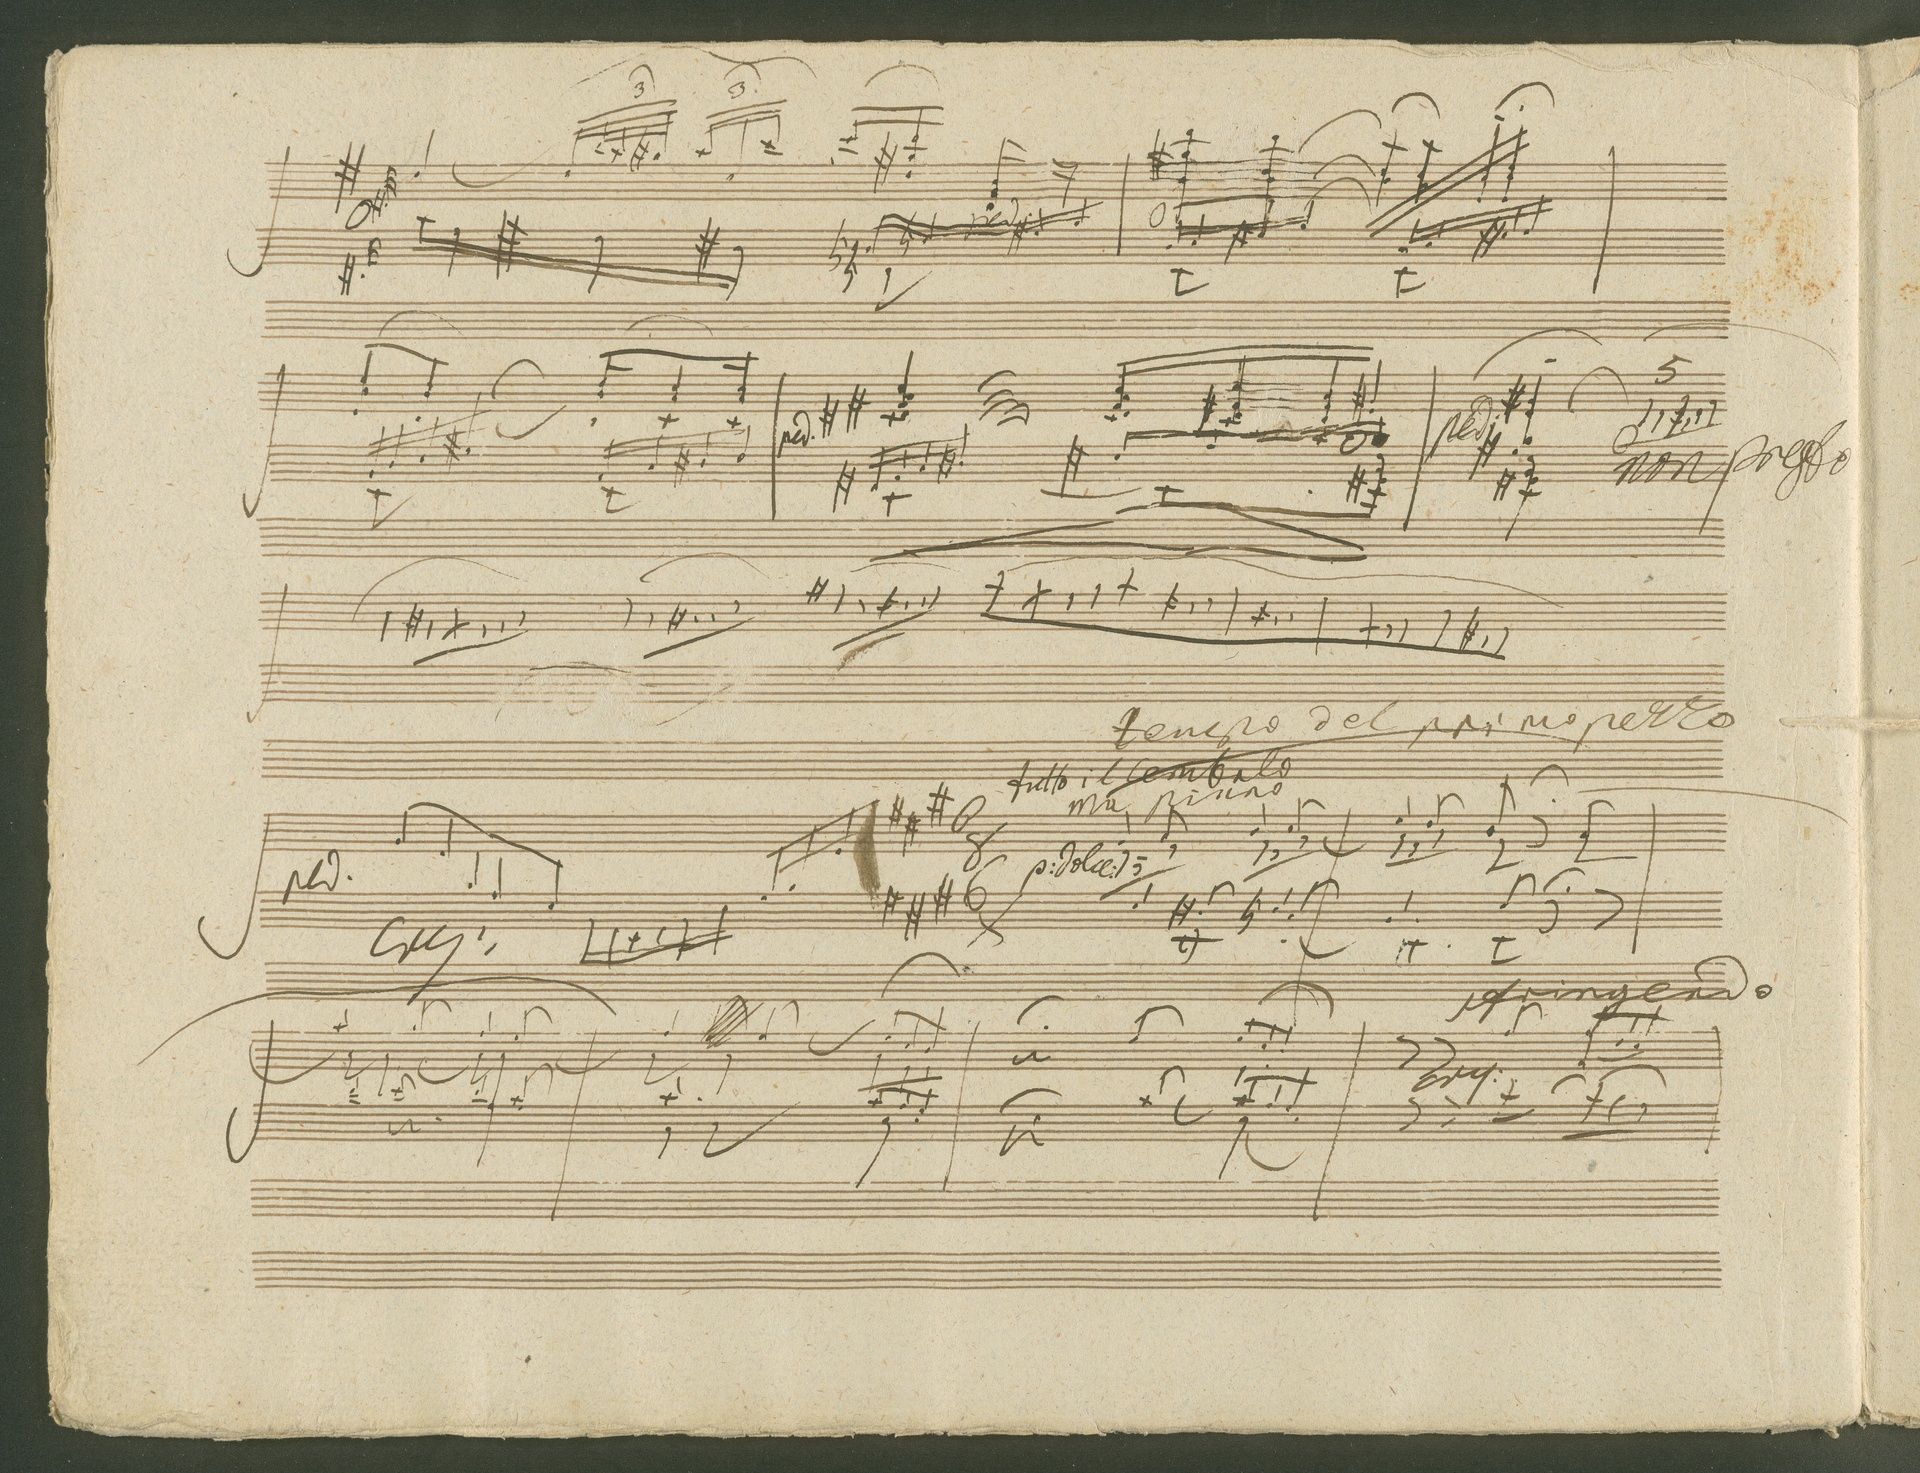 3 3
ped.
ped. ped. 5
non presto
tempo del primo pezzo
tutto il Cembalo
ma piano
6
8
ped. p: dolce:
6
8
stringendo